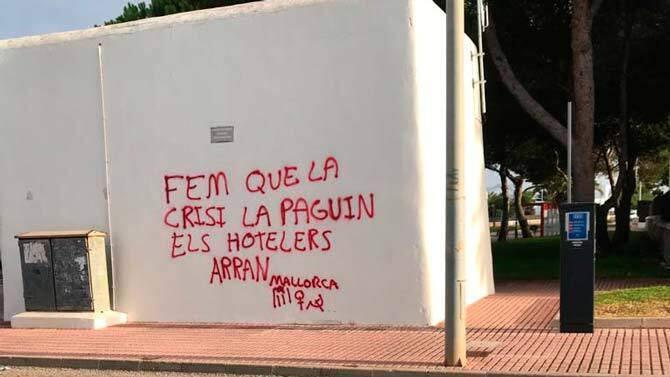 FEM QUE LA
CRISI LA PAGUIN
ELS HOTELERS
ARRAN MALLORCA